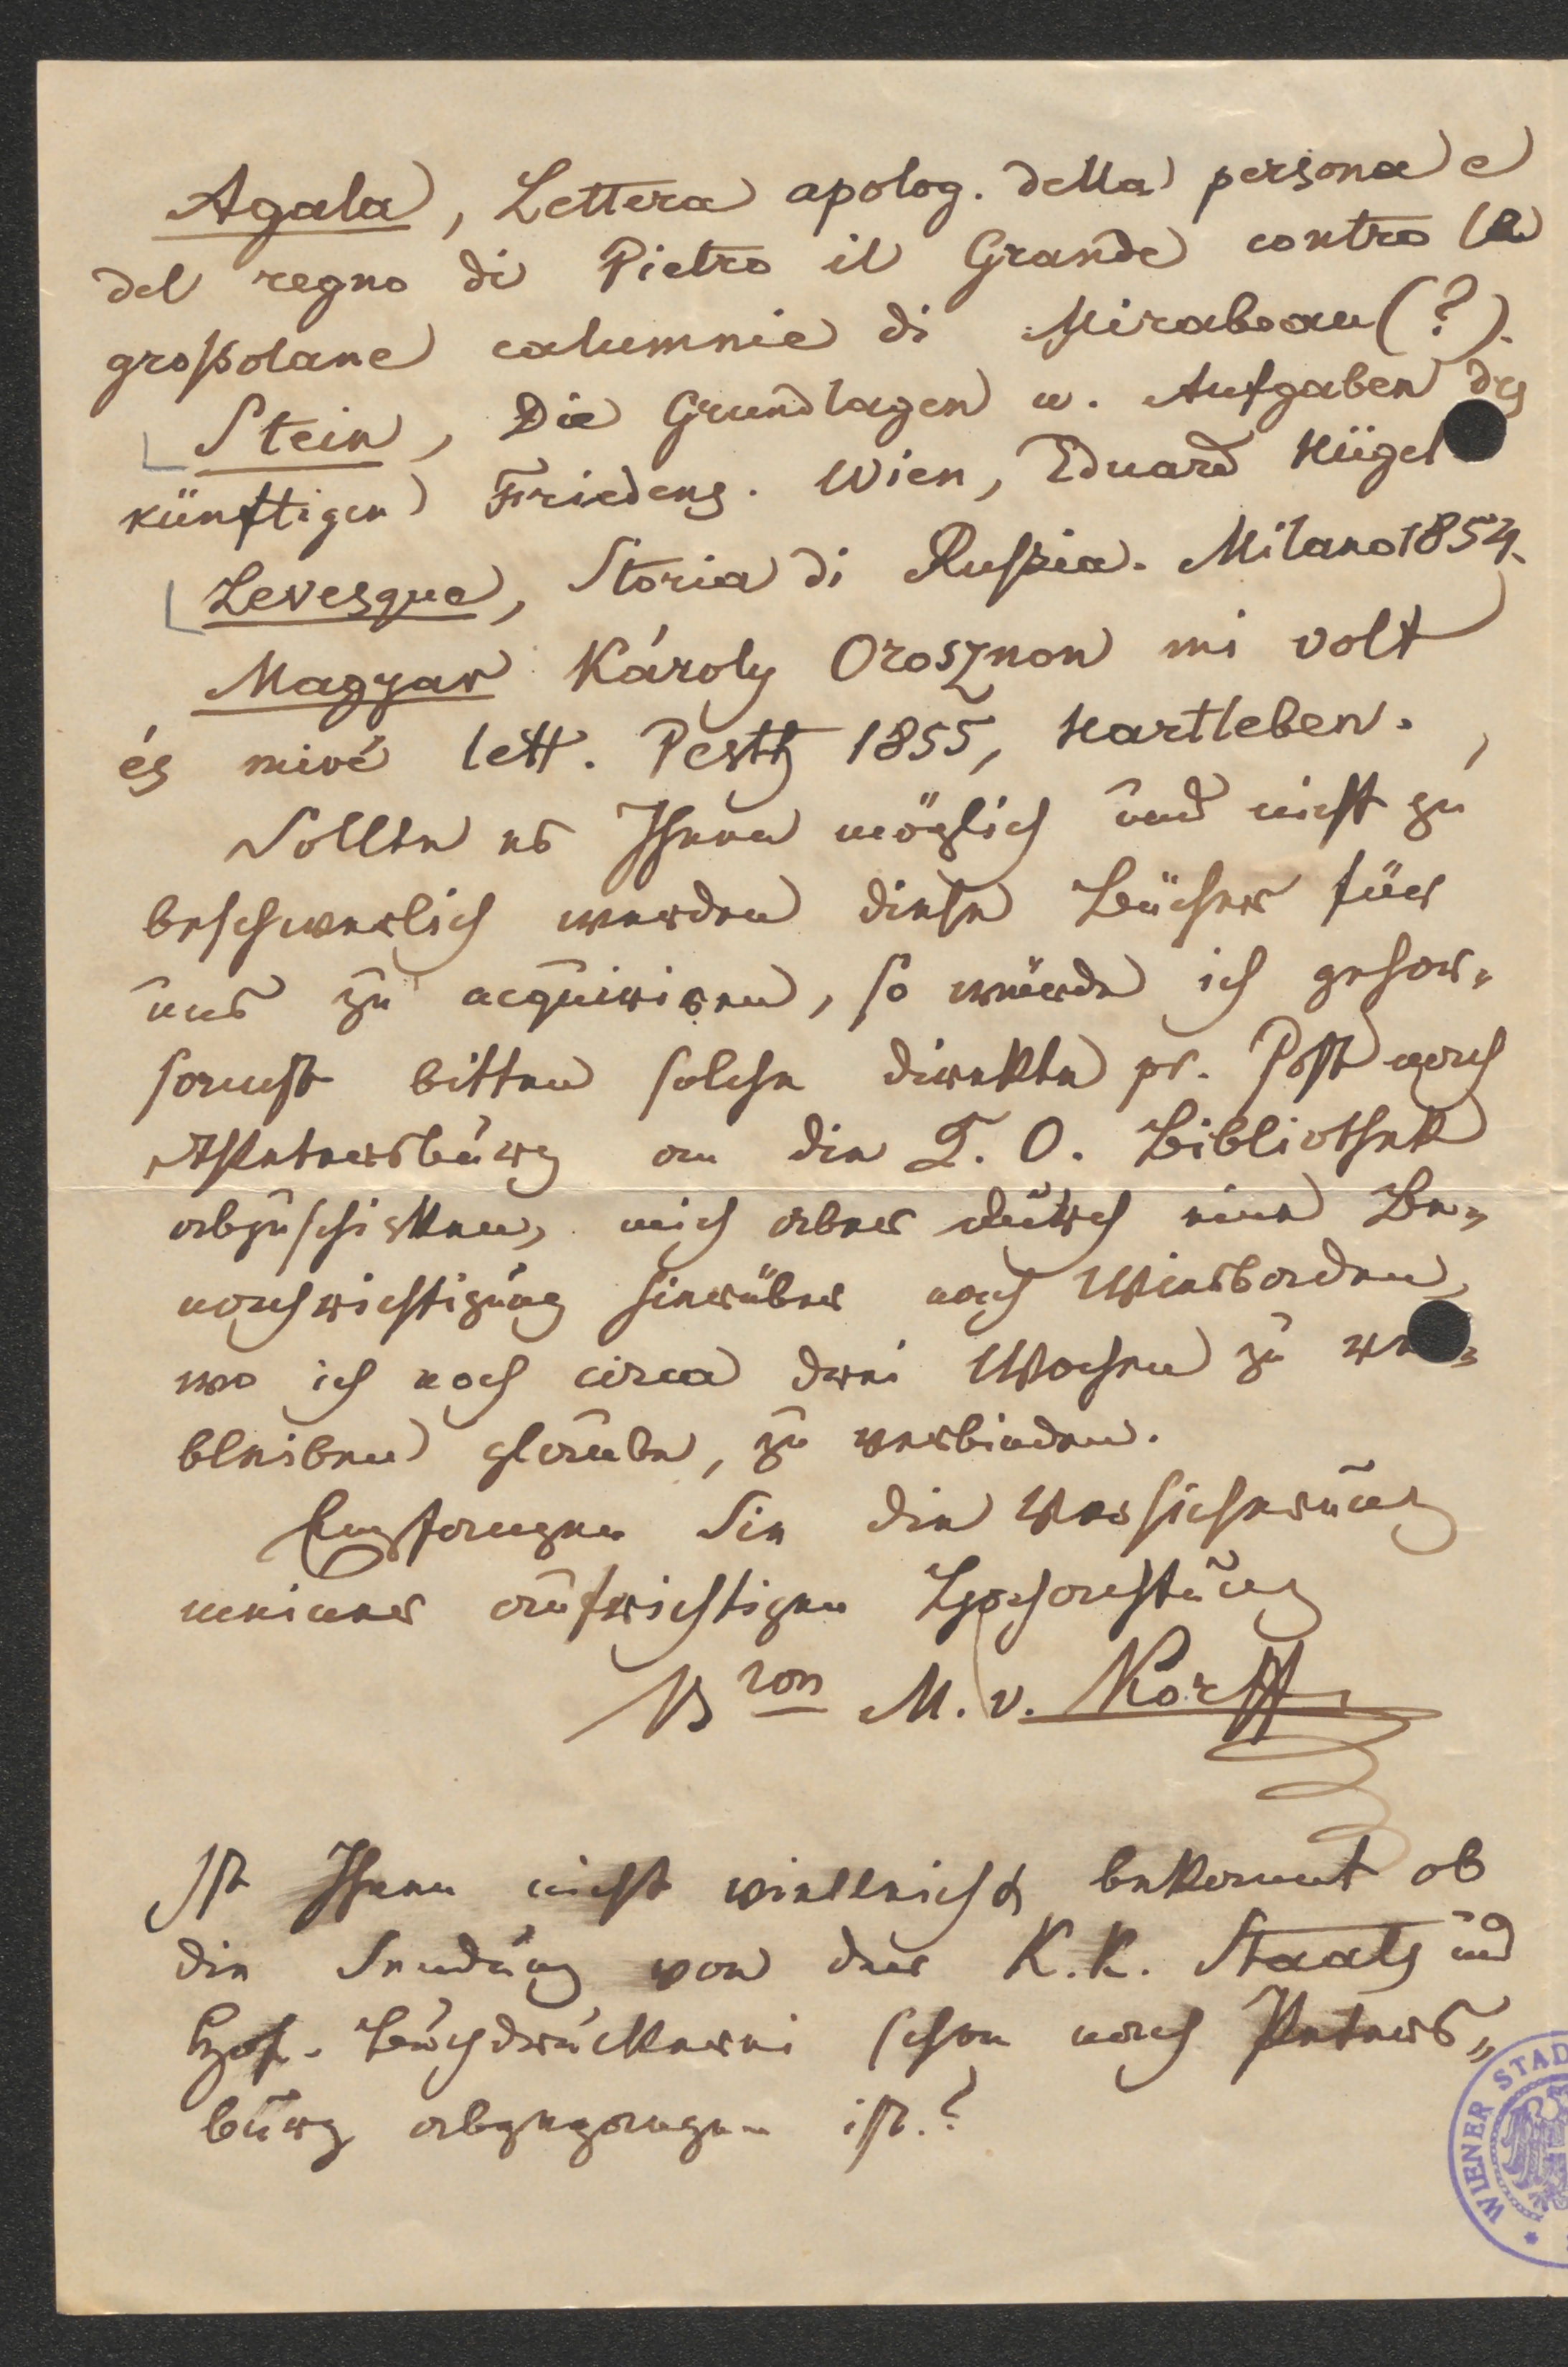 Agala, Lettera apolog. della persona e
del regno di Pietro il Grande contro le
großolane calumnie di Mirabeau (?).
Stein, Die Grundlagen u. Aufgaben des
künftigen Friedens. Wien, Eduard Hügel
Levesque, Storia di Russia. Milano 1854.
Magyar Károly Orosznon mi volt
és mivé lett. Pesth 1855, Hartleben.
Sollte es Ihnen möglich und nicht zu
beschwerlich werden diese Bücher für
uns zu acquiriren, so würde ich gehor-
samst bitten solche direkte pr. Post nach
StPetersburg an die K. O. Bibliothek
abzuschicken, mich aber durch eine Be-
nachrichtigung hierüber nach Wiesbaden,
wo ich noch circa drei Wochen zu ver-
bleiben glaube, zu verbinden.
Empfangen Sie die Versicherung
meiner aufrichtigen Hochachtung
Bron M. v. Korff
Ist Ihnen nicht vielleicht bekannt ob
die Sendung von der K. K. Staats und
Hof-Buchdruckerei schon nach Peters-
burg abgegangen ist.?
WIENER STAD